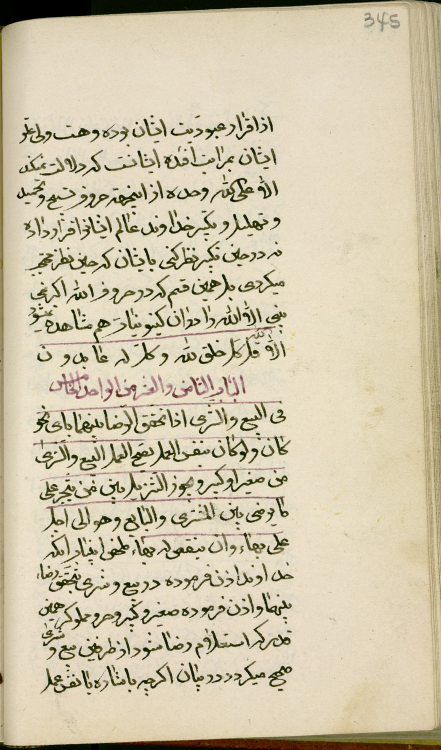 345
از اقرار عبودیت ایشان بوده و هست و لم
ایشان مرایت افئده ایشانست که دلالت نمیکند
الا علی الله وحده از اینجهة حروف تسبیح و تحمید
و تهلیل و تکبیر خداوند عالم ایشانرا قرار داده
نه در حین تکبر نظر کنی بایشان که حین نظر محتجب
میگردی بل همین قسم که در حروف الله اکبر نمی
بینی الا الله را در ان کینونیات هم مشاهده
الا الله قل کل خلق لله و کل له عابدون
الباب الثامن والعشر من الواحد الخامس
فی البیع والشری اذا تحقق الرضا بینهما بای نحو
کان ولو کان بنفس العمل یصح العمل البیع والشری
من صغیر او کبیر و یجوز التنزیل بین من یتجر علی
ما یرضی بین المشتری والبایع و هو الی اجل
علی بهاء وان ینقص له بهاء ملخص این باب انکه
خداوند اذن فرموده در بیع و شری بتحقق رضا
بینهما و اذن فرموده صغیر و کبیر و حر و مملوک همین
قدر که استعلام رضا شود از طرفین بیع و شری
صحیح میگردد در میان اگرچه باشاره یا نفس عمل